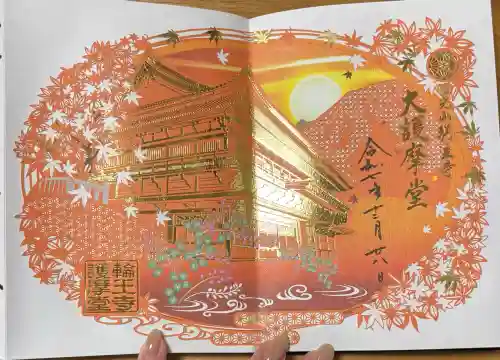 日光山輪王寺
大護摩堂
令和七年
廿八日
輪王寺
護摩堂